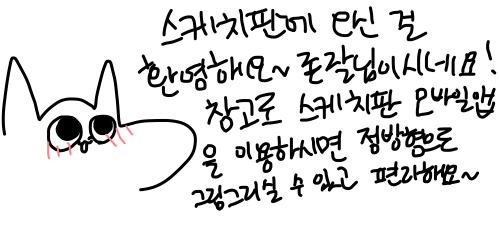 스케치판에 오신 걸
환영해요~ 존잘님이시네요!
창고로 스케치판 모바일앱
을 이용하시면 정방형으로
그림그리실 수 있고 편라해요~